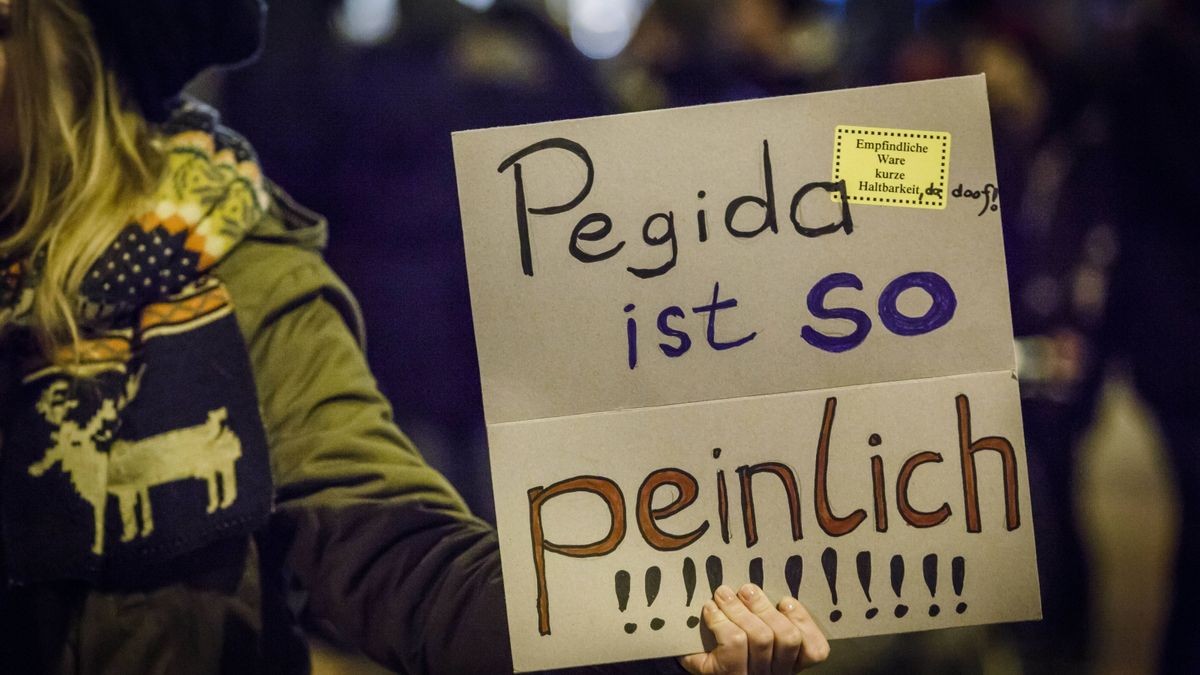 Pegida
Empfindliche
Ware
kurze
Haltbarkeit, da doof!
ist so
peinlich
!!!!!!!!!!!